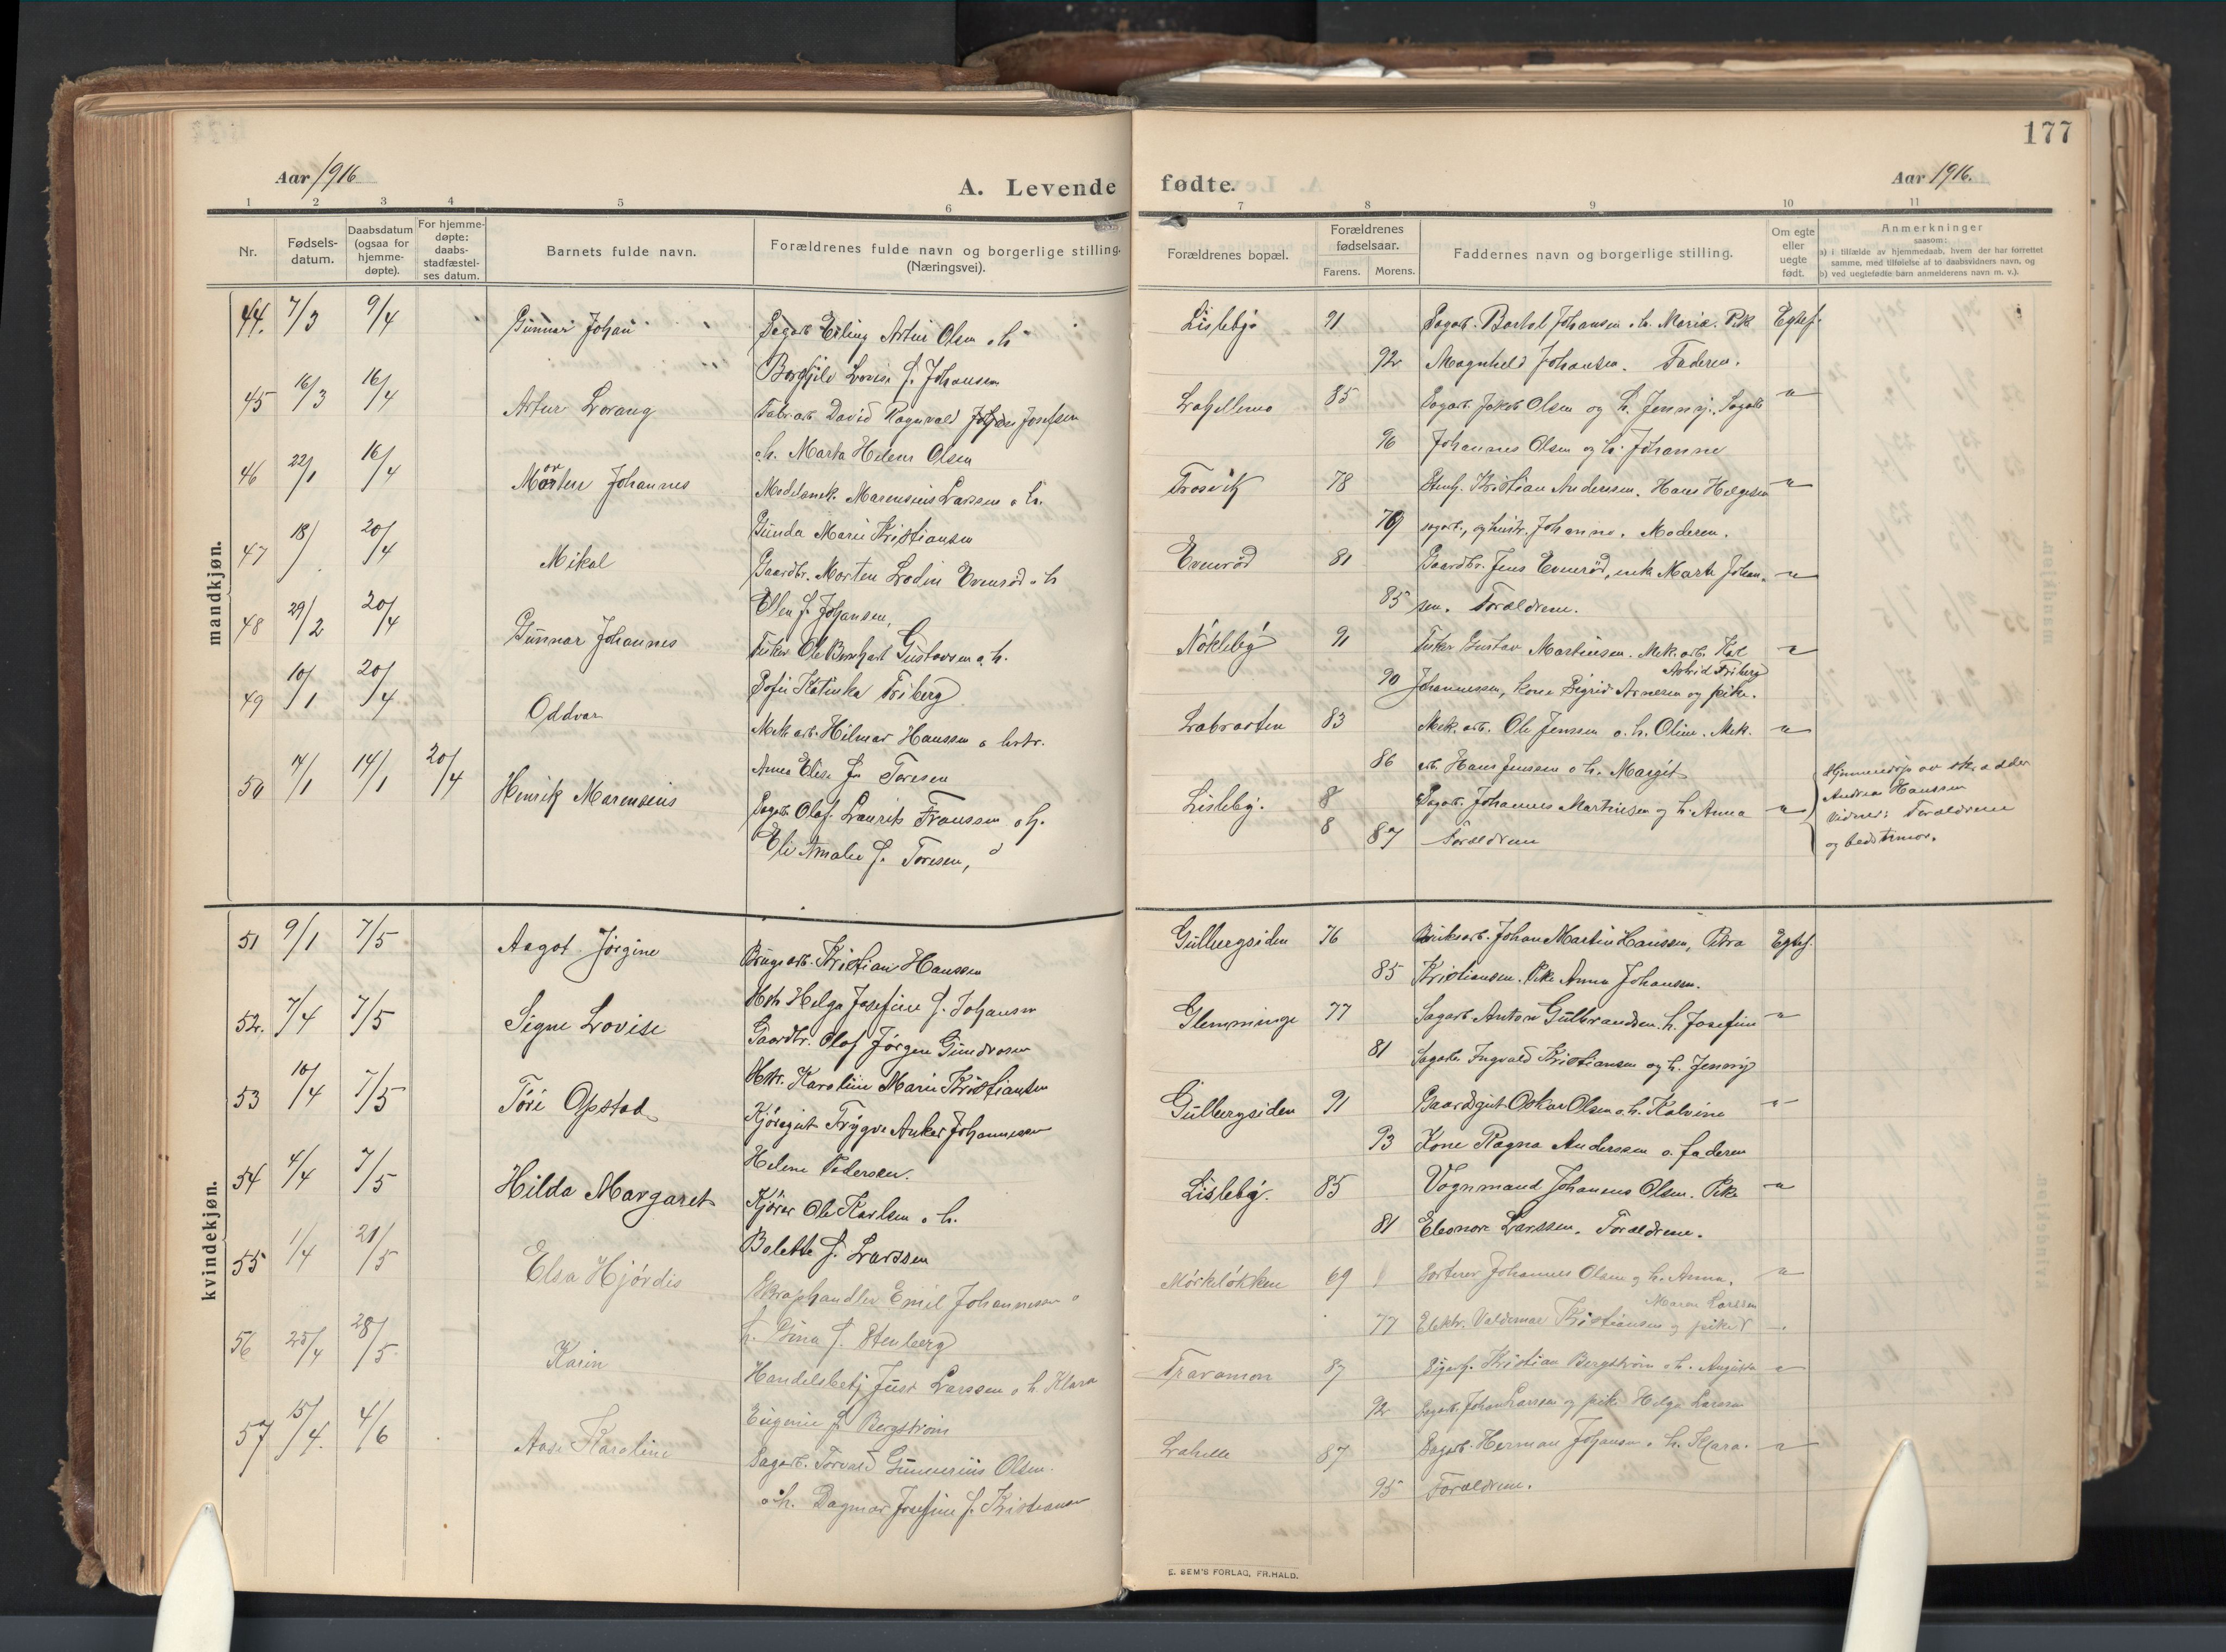 177
Aar 1916
A. Levende fødte.
Aar 1916.
1 2 3 4 5 6 7 8 9 10 11
Nr.
Fødsels-
datum.
Daabsdatum
(ogsaa for
hjemme-
døpte).
For hjemme-
døpte:
daabs-
stadfæstel-
ses datum.
Barnets fulde navn.
Forældrenes fulde navn og borgerlige stilling.
(Næringsvei).
Forældrenes bopæl.
Forældrenes
fødselsaar.
Farens. Morens.
Faddernes navn og borgerlige stilling.
Om egte
eller
uegte
født.
Anmerkninger
saasom:
a) i tilfælde av hjemmedaab, hvem der har forrettet
samme, med tilføielse af to daabsvidners navn, og
b) ved uegtefødte børn anmelderens navn m. v.).
mandkjøn.
44. 7/3 9/4 Gunnar Johan Sagarb. Erling Artur Olsen o h Lislebý 91 Sagarb. Bartol Johansen o. h. Marie. Pik Egtef.
Borghild Lovise f. Johansen 92 Magnhild Johansen. Faderen.
45 16/3 16/4 Artur Lorang Fabrarb. David Ragnvald Josefsen Lahellemo 85 Sagarb. Jakob Olsen og h. Jenny. Sagarb "
o. h. Marta Helene Olsen 96 Johannes Olsen og h. Johanne
46 22/1 16/4 Morten Johannes Modelsnek. Marensius Larssen o h. Trosvik 78 Stenh. Kristian Anderssen. Hans Helgesen "
Gunda Marie Kristiansen 79 sagarb., og hustr. Johanne. Moderen.
47 18/ 20/4 Mikal Gaardbr. Morten Lodin Evenrød o h Evenrød 81 Gaardbr. Jens Evenrød, enke Marte Johan- "
Ellen f. Johansen, 85 sen. Forældrene.
48 29/2 20/4 Gunnar Johannes Fisker Ole Bernhart Gustavsen o. h. Nøklebý 91 Fisker Gustav Martinsen. Mek. arb. Kal "
Sofie Katinka Friberg 90 Johannessen, kone Sigrid Arnesen og pike Astrid Friberg.
49 10/1 20/4 Oddvar Mek arb. Hilmar Hanssen o hstr. Labraaten 83 Mek. arb. Ole Jenssen o. h. Oline. Mek. "
Anna Elise f. Toresen 86 arb. Hans Jenssen o h. Margit
50 7/1 14/1 20/4 Henrik Marensius Sagarb. Olaf Laurits Franssen o h. Lislebý. 8 Sagarb. Johannes Martinsen og h. Anna "
Eli Amalie f. Toresen, 8 87 Forældrene
Hjemmedøp av skrædder
Andrea Hanssen
Vidner: Forældrene
og bedstemor.
kvindekjøn.
51 9/1 7/5 Aagot Jørgine Brugsarb. Kristian Hanssen Gulbergsiden 76 Bruksarb. Johan Martin Hanssen, Petra Egtef.
Hstr Helga Josefine f. Johansen 85 Kristiansen. Pike Anna Johansen.
52. 7/4 7/5 Signe Lovise Gaardbr. Olaf Jørgen Gundrosen Glemminge 77 Sagarb Anton Gulbrandsen. h. Josefine "
Hstr. Karoline Marie Kristiansen 81 Sagarb. Ingvald Kristiansen og h. Jenny
53 10/4 7/5 Tori Opstad Kjøregut Trygve Anker Johannessen Gulbergsiden 91 Gaardsgut Oskar Olsen o. h. Kalvine "
Helene Pedersen. 93 Kone Ragna Anderssen o. faderen
54 4/4 7/5 Hilda Margaret Kjører Ole Karlsen o h. Lislebý. 85 Vognmand Johannes Olsen. Pike "
Bolette f. Larssen 81 Eleonore Larssen. Forældrene.
55 1/4 21/5 Elsa Hjørdis Skraphandler Emil Johannessen o Mørkeløkken 69 Sorterer Johannes Olsen og h. Anna. "
h. Gina f. Stenberg 77 Elektr. Valdemar Kristiansen og pike Maren Karlsen
56 25/4 28/5. Karin Handelsbetj Just Larssen o h. Klara Traramoen 87 Sigarf. Kristian Bergstrøm o h. Augusta "
Eugenie f. Bergstrøm 92 Sagarb. Johan Larssen og pike Helga Larssen
57 15/4. 4/6 Aase Karoline Sagarb. Torvald Gunnerius Olsen. Lahelle 87 Sagarb. Herman Johansen o. h. Klara. "
o. h. Dagmar Josefine f. Kristiansen 95 Forældrene.
E. SEM'S FORLAG, FR.HALD.